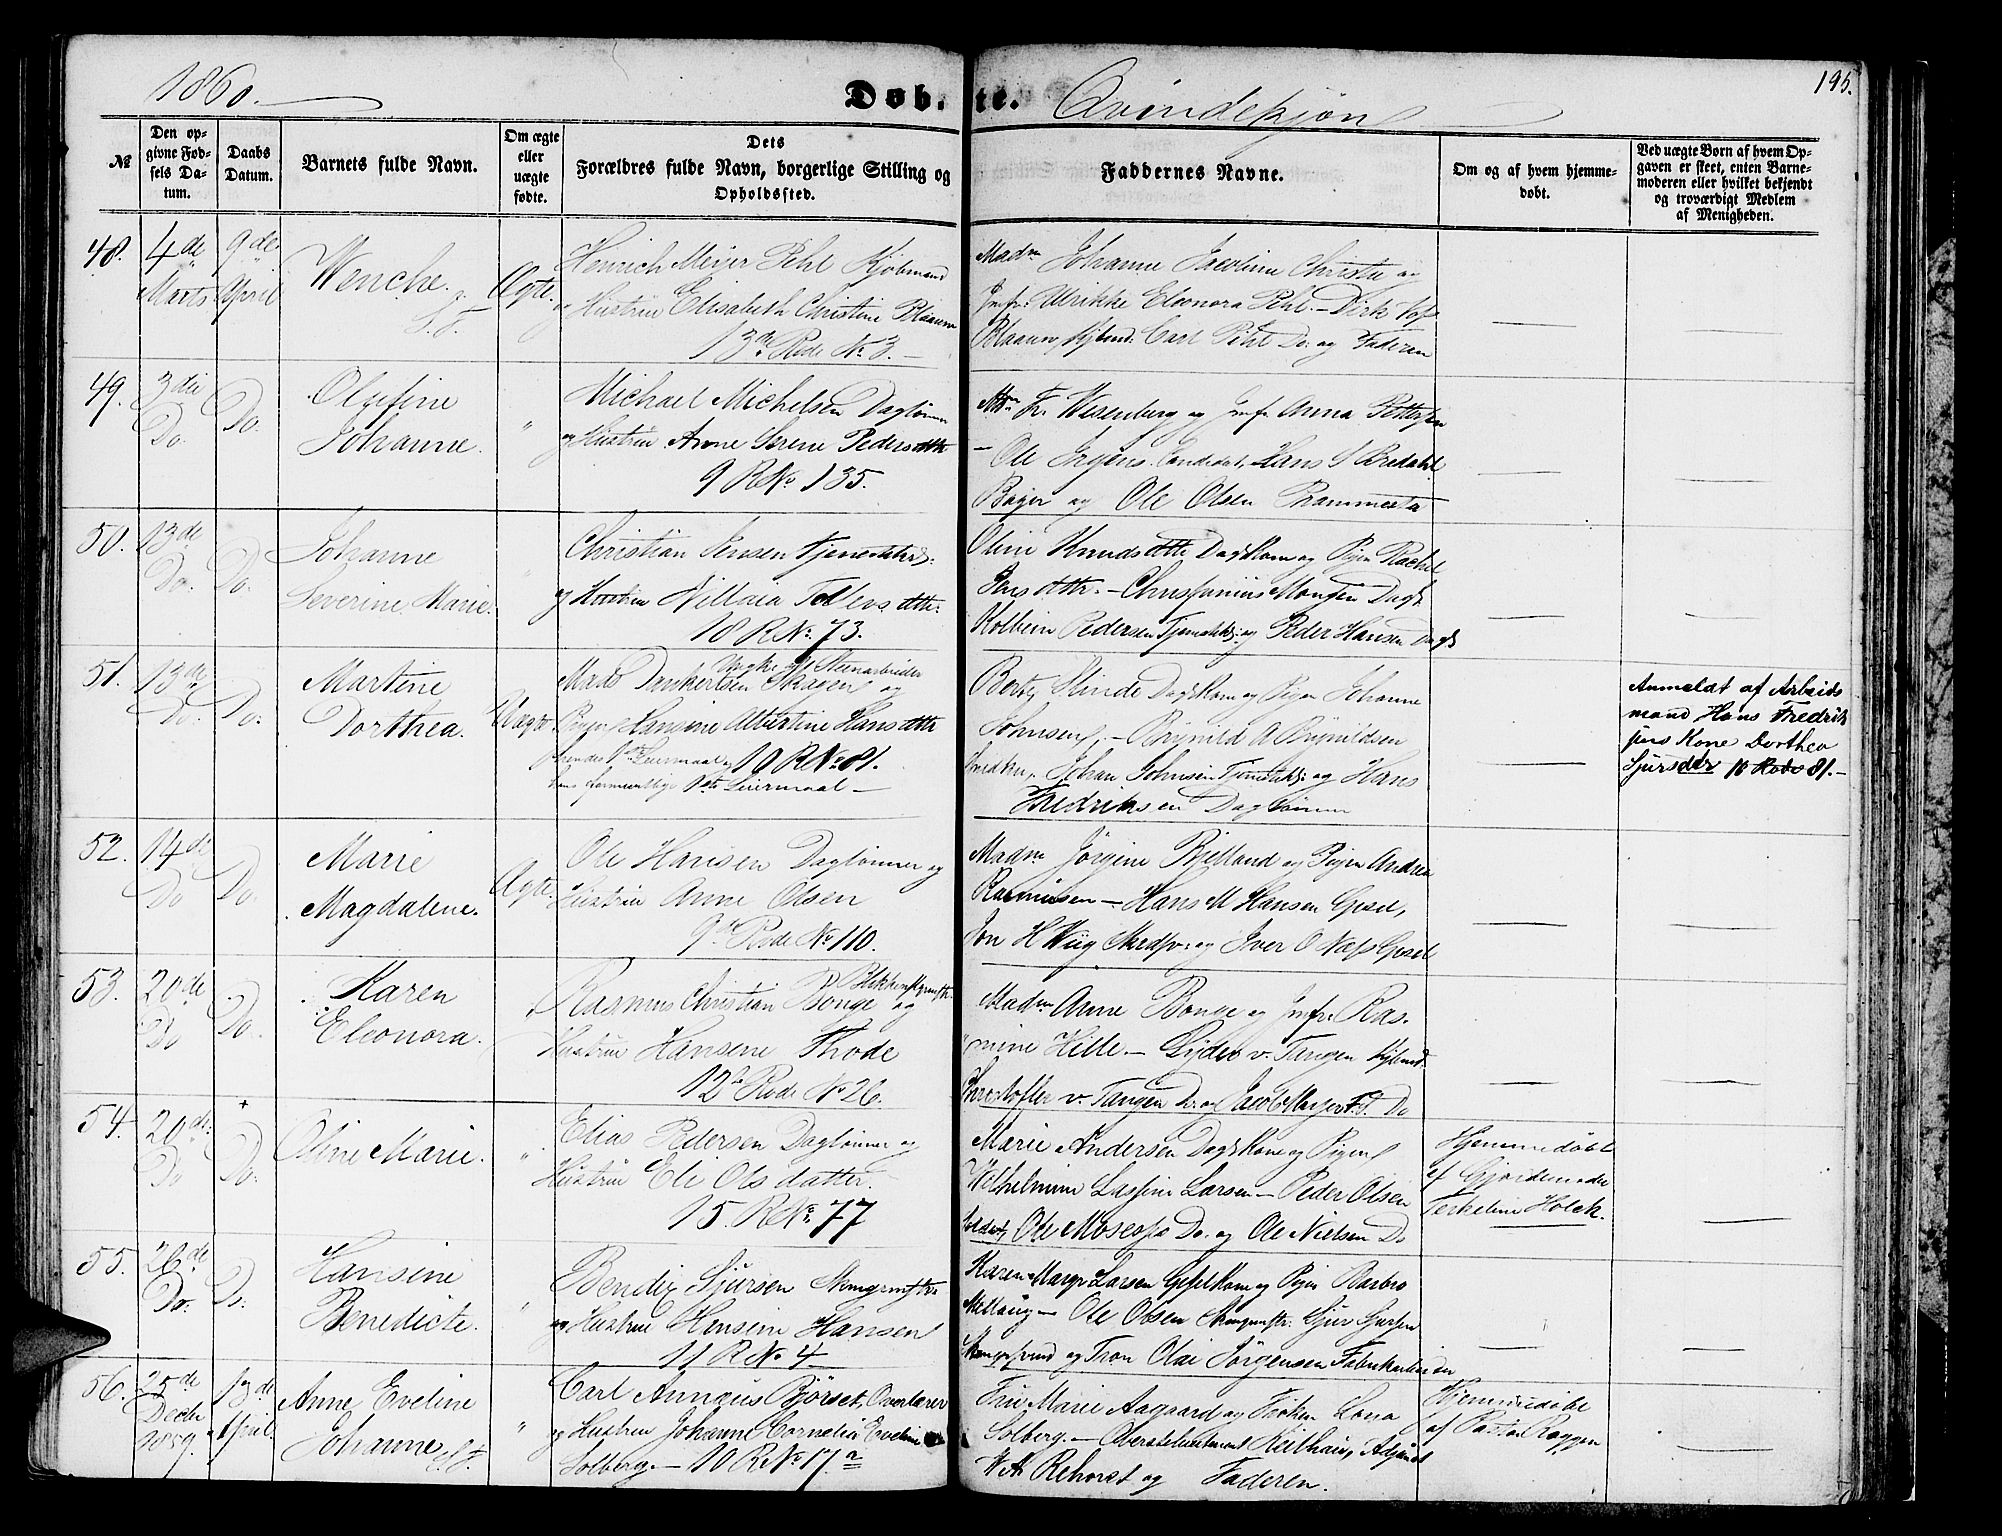 1860.
Døbte. Qvindekjøn
195.
№
Den opgivne Fødsels Datum.
Daabs Datum.
Barnets fulde Navn.
Om ægte eller uægte fødte.
Dets Forældres fulde Navn, borgerlige Stilling og Opholdssted.
Faddernes Navne.
Om og af hvem hjemmedøbt.
Ved uægte Børn af hvem Opgaven er skeet, enten Barnemoderen eller hvilket bekjendt og troværdigt Medlem af Menigheden.
48.
4de Marts
9de April
Wenche.
Ægte.
Henrich Meyer Pihl Kjøbmand
og Hustru Elisabeth Christine Blaauw
13de Rode No 3.
Madm Johanne Jacobine Christie og
Jmfr. Ulrikke Eleonora Pihl. – Dirk
Blaauw, Kjbmd. Carl Pihl Do. og Faderen
49.
3die Do.
Do.
Olufine
Johanne.
"
Michael Michelsen Dagløner
og Hustru Anne Serene Pedersdttr
9 R No 135.
Fr. Wesenberg og Jmfr Anna Pettersen
– Ole Irgens Candidat, Hans S Bredahl
Bager og Ole Olsen
50.
13de Do.
Do.
Johanne
Severine Marie.
"
Christian Jensen
og Hustru Tollevsdttr.
18 R No. 73.
Oline Knudsdttr Dagskone og Pigen Rachel
Jensdttr. – Monsen Dagk
Kolbein Pedersen og Peder Hansen Dagk
51.
13de Do.
Do.
Martine
Dorthea.
Uægte.
Ungkarl Steenarbeider
Mads Dankertsen Skagen og
Pigen Hansine Albertine Hansdttr
hendes 1ste Leiermaal, 19 R No 81.
hans formentlige 1ste Leiermaal –
Dagskone og Pigen Johanne
Johnsen, – Brynild A Brynildsen
Snedker, Johan Johnsen og Hans
Fredriksen Dagløner
Anmeldt af Arbeids
mand Hans Fredrik
sens Kone Dorthea
Sjursdtr Rode 81. –
52.
14de Do
Do.
Marie
Magdalene.
Ægte.
Ole Hansen Dagløner og
Hustru Anne Olsen
9de Rode No 110.
Madm Jørgine Bjelland og Pigen Andrea
Rasmusen – Hans M Hansen Gesel,
Jon H Wiig og Iver O Næss Gesel
53.
20de Do
Do.
Karen
Eleonora.
"
Blikkenslagermstr.
Rasmus Christian Bonge og
Hustru Hansine Thode
12te Rode No 26.
Madm Anne Bonge og Jmfr. Ras-
mine Hille – Lyder v. Tangen Kjbmd.
Christoffer v. Tangen Do. og Jacob Do
54.
20de Do
Do.
Oline Marie.
"
Elias Pedersen Dagløner og
Hustru Eli Olsdatter.
15. R No. 77
Marie Andersen Dagskone og Pigen
Wilhelmine Lassine Larsen – Peder Olsen
Soldat, Ole Do. og Ole Nielsen Do
Hjemmedøbt
af Gjordemoder
Terkeline Holck.
55.
26de Do.
Do.
Hansine
Benedicte.
"
Bendix Sjursen
og Hustru Hansine Hansen
11 R No 4
Karen Margr Larsen Gesel Kone og Pigen Barbro
– Ole Olsen Sjur Sjursen
og Tron Olai Jørgensen Fabrikarbeider
56.
25de Decbr 1859.
19de April
Anne Eveline
Johanne
"
Carl Annæus Bjørset, Overlærer
og Hustru Johanne Cornelia Eveline
Solberg. – 10 R No 17 a
Fru Marie Aagaard og Frøken Lona
Solberg. – Oberstlieutenant Keilhau, Adjunct
Rehorst og Faderen.
Hjemmedøbt
af Pastor Roggen